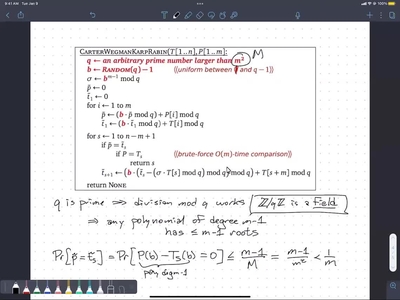 9:41 AM Tue Jan 5
CARTERWEGMANKARPRABIN(T[1..n], P[1..m]):
q ← an arbitrary prime number larger than m² M
b ← RANDOM(q) − 1 ⟨⟨uniform between and q − 1⟩⟩
σ ← b^{m−1} mod q
p̃ ← 0
t̃₁ ← 0
for i ← 1 to m
p̃ ← (b · p̃ mod q) + P[i] mod q
t̃₁ ← (b · t̃₁ mod q) + T[i] mod q
for s ← 1 to n − m + 1
if p̃ = t̃ₛ
if P = Tₛ ⟨⟨brute-force O(m)-time comparison⟩⟩
return s
t̃ₛ₊₁ ← (b · (t̃ₛ − (σ · T[s] mod q) mod q) mod q) + T[s + m] mod q
return NONE
q is prime ⟹ division mod q works ℤ/qℤ is a field
⟹ any polynomial of degree m-1
has ≤ m-1 roots
Pr[p̃ = t̃ₛ] = Pr[P(b) − Tₛ(b) = 0] ≤ (m-1)/M = (m-1)/m² < 1/m
poly deg m-1